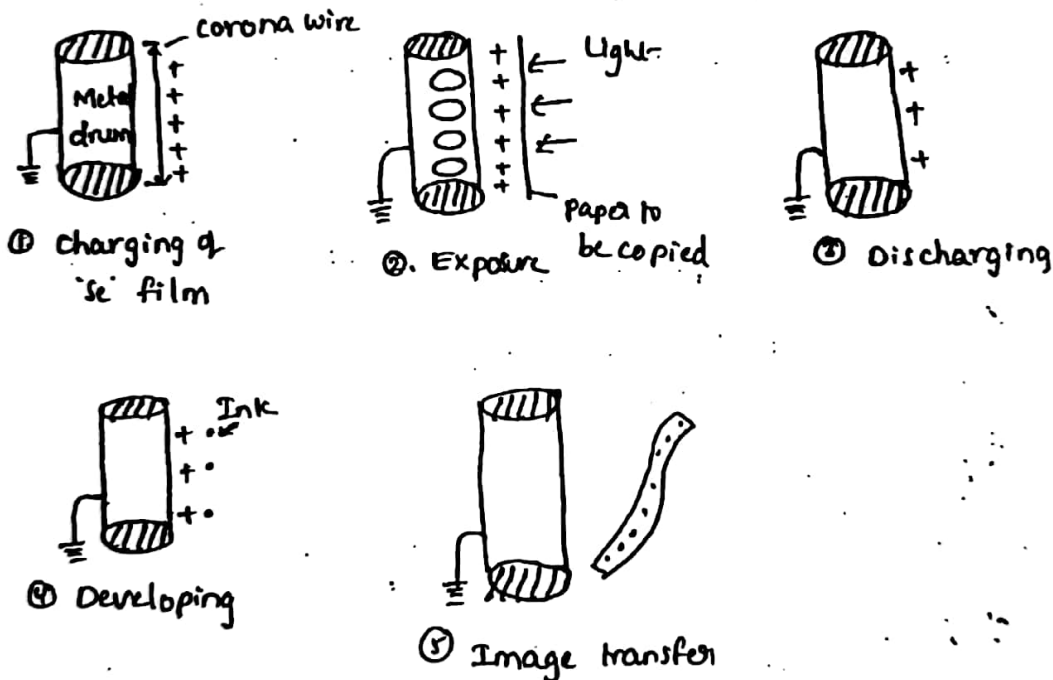 corona wire
Metal
drum
① Charging of
'Se' film
Light
paper to
be copied
②. Exposure
③ Discharging
Ink
④ Developing
⑤ Image transfer